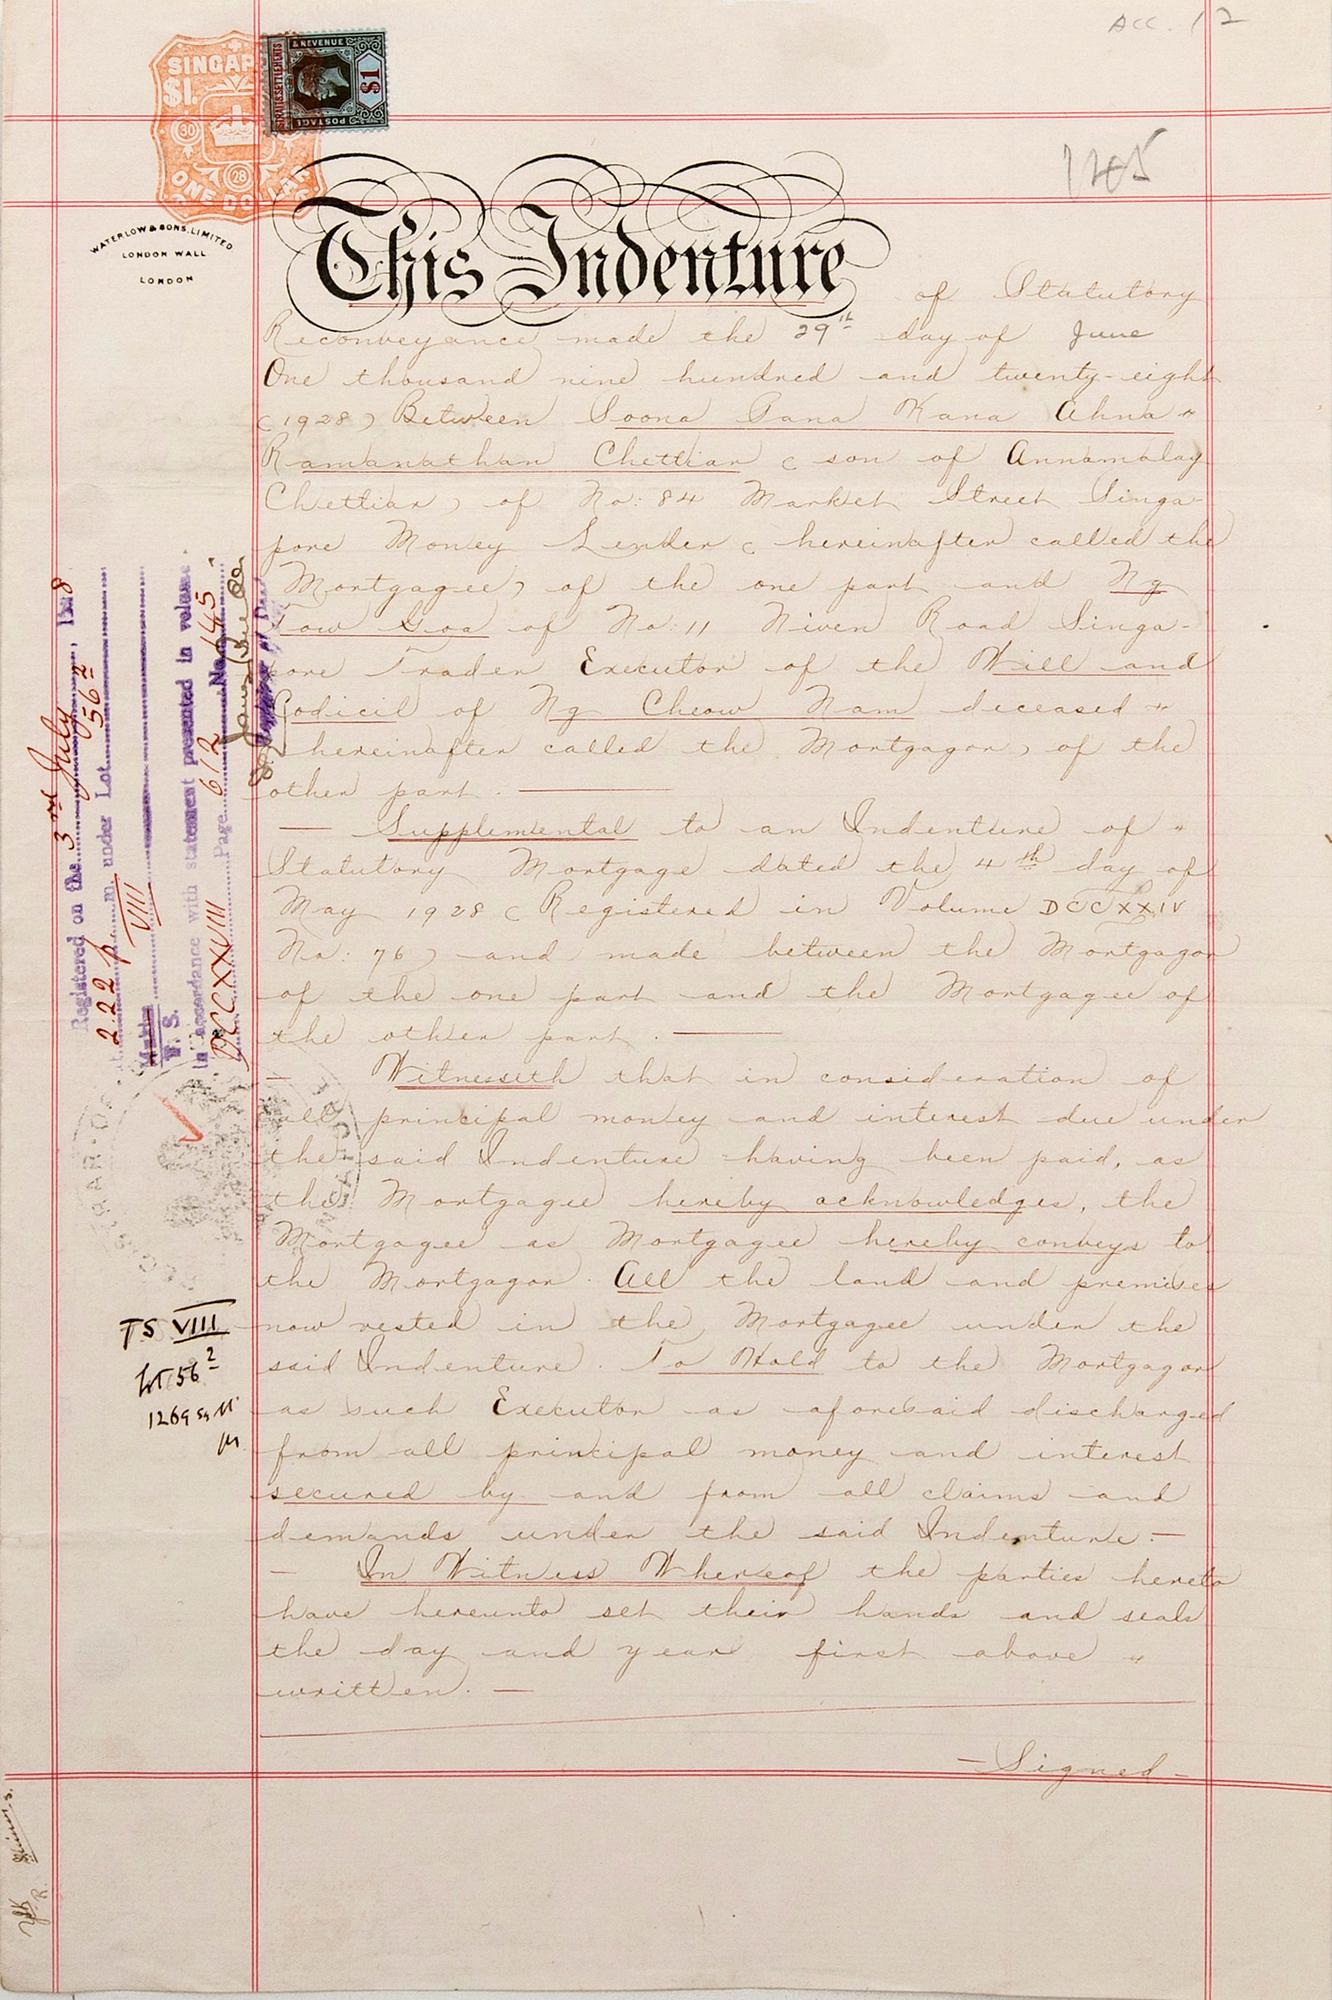 Acc. 12
SINGAP
$1.
30
28
ONE DOLLAR
& REVENUE
STRAITS SETTLEMENTS
$1
POSTAGE
WATERLOW & SONS, LIMITED
LONDON WALL
LONDON
This Indenture
of Statutory
Reconveyance made the 29th day of June
One thousand nine hundred and twenty-eight
(1928) Between Soona Pana Kana Ahna
Ramanathan Chettiar (son of Annamalay
Chettiar) of No: 84 Market Street Singa-
pore Money Lender (hereinafter called the
Mortgagee) of the one part and Ng
Tow Goa of No: 11 Niven Road Singa-
pore Trader Executor of the Will and
Codicil of Ng Cheow Nam deceased
hereinafter called the Mortgagor) of the
other part.
Supplemental to an Indenture of
Statutory Mortgage dated the 4th day of
May 1928 (Registered in Volume DCCXXIV
No: 76) and made between the Mortgagor
of the one part and the Mortgagee of
the other part.
Witnesseth that in consideration of
all principal money and interest due under
the said Indenture having been paid, as
the Mortgagee hereby acknowledges, the
Mortgagee as Mortgagee hereby conveys to
the Mortgagor. All the land and premises
now vested in the Mortgagee under the
said Indenture. To Hold to the Mortgagor
as such Executor as aforesaid discharged
from all principal money and interest
secured by and from all claims and
demands under the said Indenture.
In Witness Whereof the parties hereto
have hereunto set their hands and seals
the day and year first above
written.
Signed
Registered on the 3rd July, 1928
at 2.22 p.m. under Lot 56²
VIII
T. S.
In accordance with statement presented in volume
DCCXXVIII Page 612 No. 145
TS VIII
Lot 56²
1269 sq ft